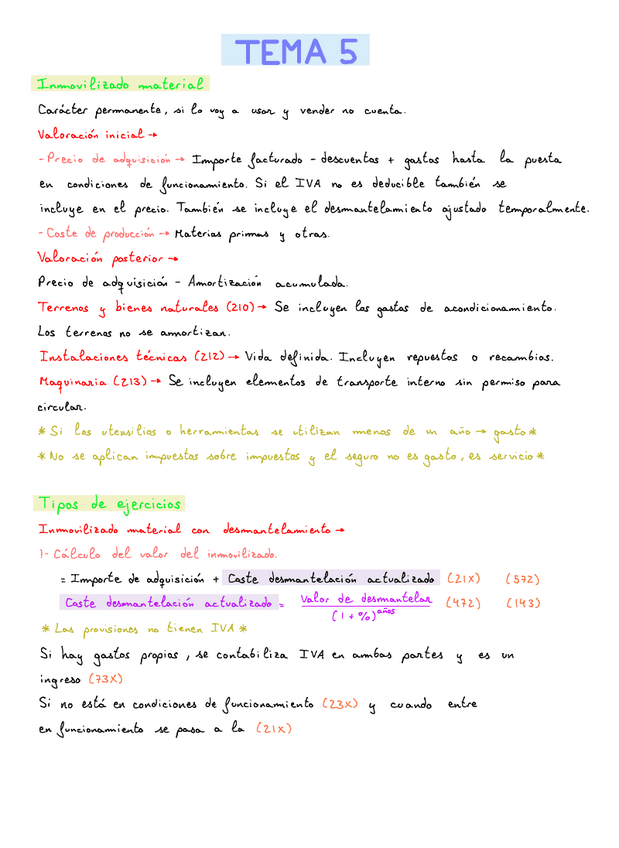 TEMA 5
Inmovilizado material
Carácter permanente, si lo voy a usar y vender no cuenta.
Valoración inicial →
- Precio de adquisición → Importe facturado - descuentos + gastos hasta la puesta
en condiciones de funcionamiento. Si el IVA no es deducible también se
incluye en el precio. También se incluye el desmantelamiento ajustado temporalmente.
- Coste de producción → Materias primas y otras.
Valoración posterior →
Precio de adquisición - Amortización acumulada.
Terrenos y bienes naturales (210) → Se incluyen los gastos de acondicionamiento.
Los terrenos no se amortizan.
Instalaciones técnicas (212) → Vida definida. Incluyen repuestos o recambios.
Maquinaria (213) → Se incluyen elementos de transporte interno sin permiso para
circular.
* Si los utensilios o herramientas se utilizan menos de un año → gasto *
* No se aplican impuestos sobre impuestos y el seguro no es gasto, es servicio *
Tipos de ejercicios
Inmovilizado material con desmantelamiento →
1- Cálculo del valor del inmovilizado.
= Importe de adquisición + Coste desmantelación actualizado (21X) (572)
Coste desmantelación actualizado = Valor de desmantelar / (1 + %)^años (472) (143)
* Las provisiones no tienen IVA *
Si hay gastos propios, se contabiliza IVA en ambas partes y es un
ingreso (73X)
Si no está en condiciones de funcionamiento (23X) y cuando entre
en funcionamiento se pasa a la (21X)